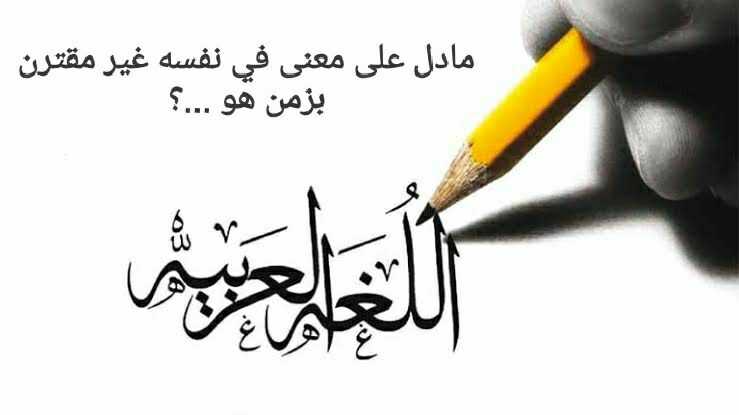 مادل على معنى في نفسه غير مقترن
بزمن هو ...؟
اللُغه العربيه